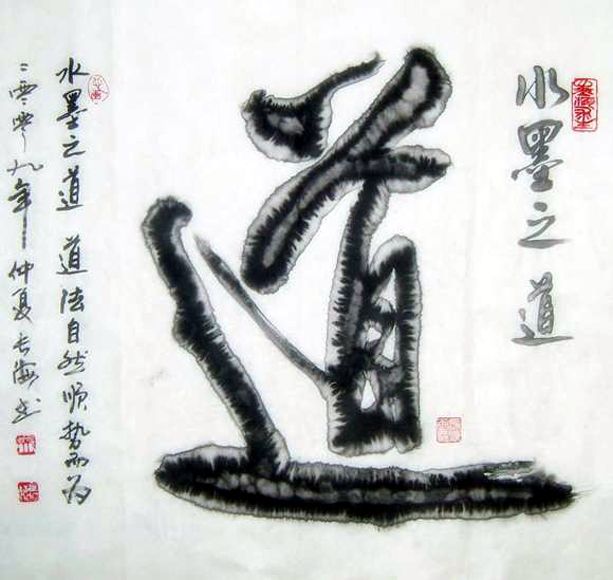 水墨之道
道
水墨之道 道法自然顺势而为
二零零九年仲夏长海书